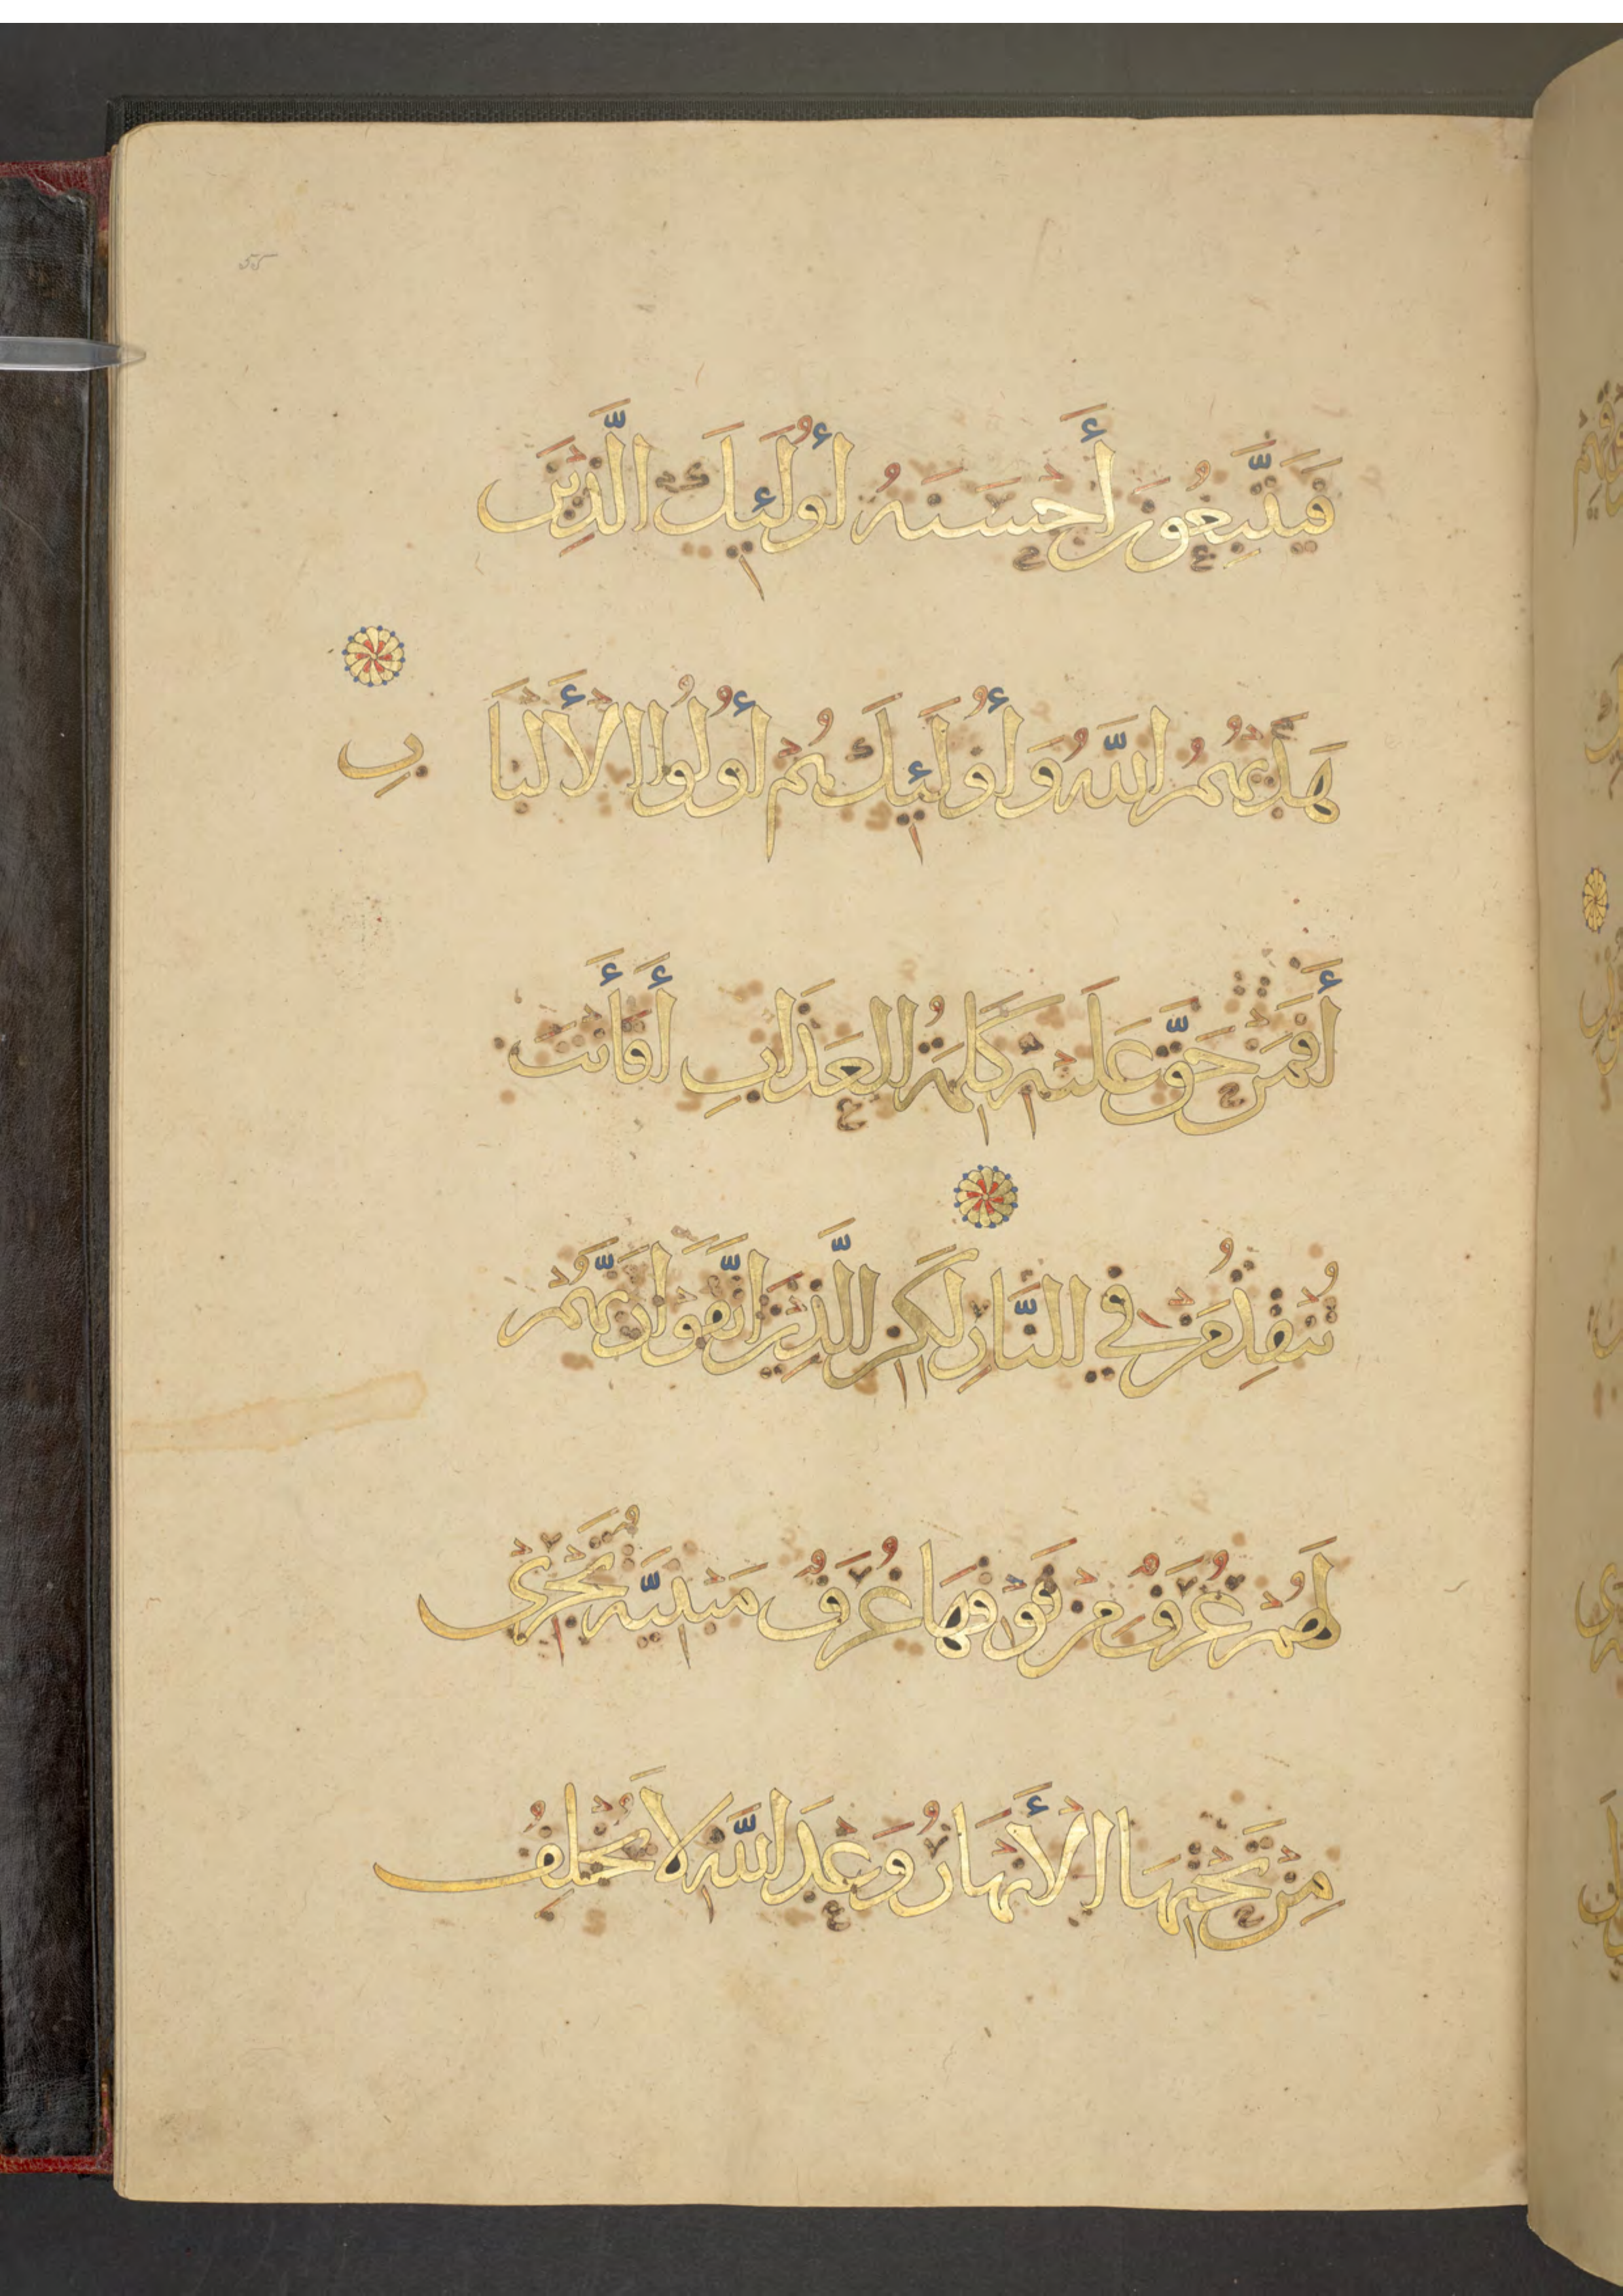 55
فَيَتَّبِعُونَ أَحْسَنَهُ أُولَئِكَ الَّذِينَ
هَدَيهُمُ اللَّهُ وَأُولَئِكَ هُمْ أُولُوا الْأَلْبَابِ
أَفَمَنْ حَقَّ عَلَيْهِ كَلِمَةُ الْعَذَابِ أَفَأَنْتَ
تُنْقِذُ مَنْ فِي النَّارِ لَكِنِ الَّذِينَ اتَّقَوْا رَبَّهُمْ
لَهُمْ غُرَفٌ مِنْ فَوْقِهَا غُرَفٌ مَبْنِيَّةٌ تَجْرِي
مِنْ تَحْتِهَا الْأَنْهَارُ وَعْدَ اللَّهِ لَا يُخْلِفُ